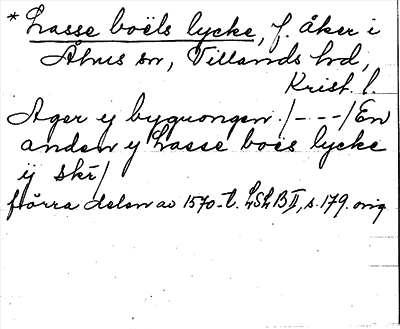 * Lasse boëls lycke, f. åker i
Åhus sn, Villands hd,
Krist. l.
Ager y byguongen /---/ En
anden y Lasse boes lycke
ÿ skr/
förra delen av 1570-t. LSLB II, s. 179. orig